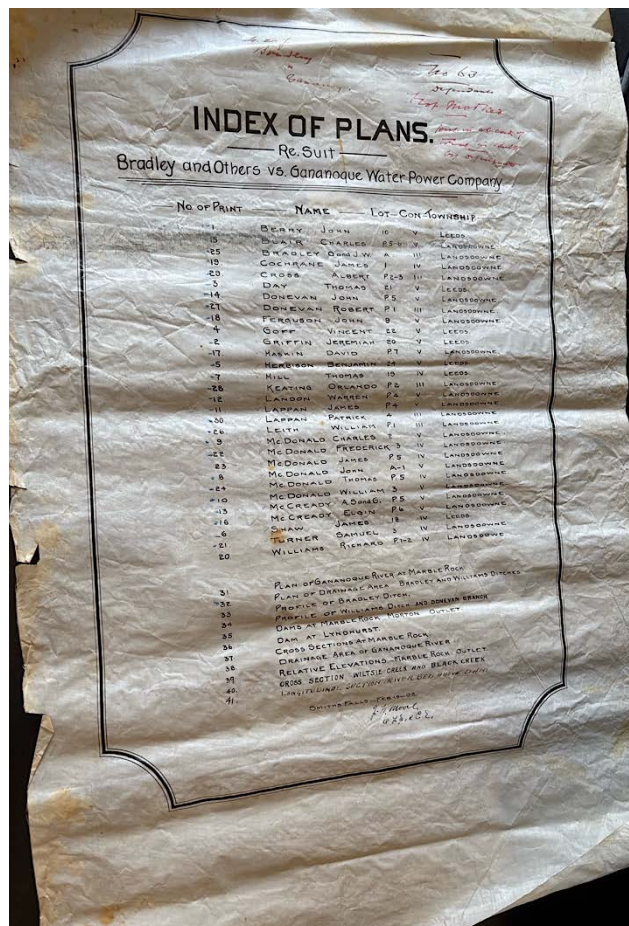 Bradley
INDEX OF PLANS.
Re. Suit
Bradley and Others vs. Gananoque Water Power Company
No of Print Name Lot Con Township
1 Berry John 10 V Leeds
15 Blair Charles P.5-6 V Landsdowne
25 Bradley G and J.W. A III Landsdowne
19 Cochrane James 1 IV Landsdowne
Cross Albert P.2-3 III Landsdowne
3 Day Thomas 21 V Leeds
14 Donevan John P.5 V Landsdowne
27 Donevan Robert P.1 III Landsdowne
18 Ferguson John 8 V Landsdowne
4 Goff Vincent 22 V Leeds
2 Griffin Jeremiah 20 V Leeds
17 Haskin David P.7 V Landsdowne
5 Herbison Benjamin 24 V Leeds
7 Hill Thomas 19 IV Leeds
28 Keating Orlando P.2 III Landsdowne
12 Landon Warren P.4 V Landsdowne
11 Lappan James P.4 V Landsdowne
30 Lappan Patrick 4 III Landsdowne
26 Leith William P.1 III Landsdowne
9 McDonald Charles V Landsdowne
22 McDonald Frederick 3 IV Landsdowne
23 McDonald James P.5 IV Landsdowne
8 McDonald John A-1 V Landsdowne
24 McDonald Thomas P.5 IV Landsdowne
10 McDonald William 3 V Landsdowne
13 McCready A.S and G. P.5 V Landsdowne
16 McCready Elgin P.6 V Landsdowne
6 Shaw James 18 IV Leeds
21 Turner Samuel 3 IV Landsdowne
20 Williams Richard P.1-2 IV Landsdowne
31 Plan of Gananoque River at Marble Rock
32 Plan of Drainage Area. Bradley and Williams Ditches
33 Profile of Bradley Ditch.
34 Profile of Williams Ditch and Donevan Branch
35 Dams at Marble Rock Morton Outlet.
36 Dam at Lyndhurst.
37 Cross Sections at Marble Rock.
38 Drainage Area of Gananoque River
39 Relative Elevations Marble Rock Outlet
40. Cross Section Wiltsie Creek and Black Creek
41. Longitudinal Section River Bed
Smiths Falls